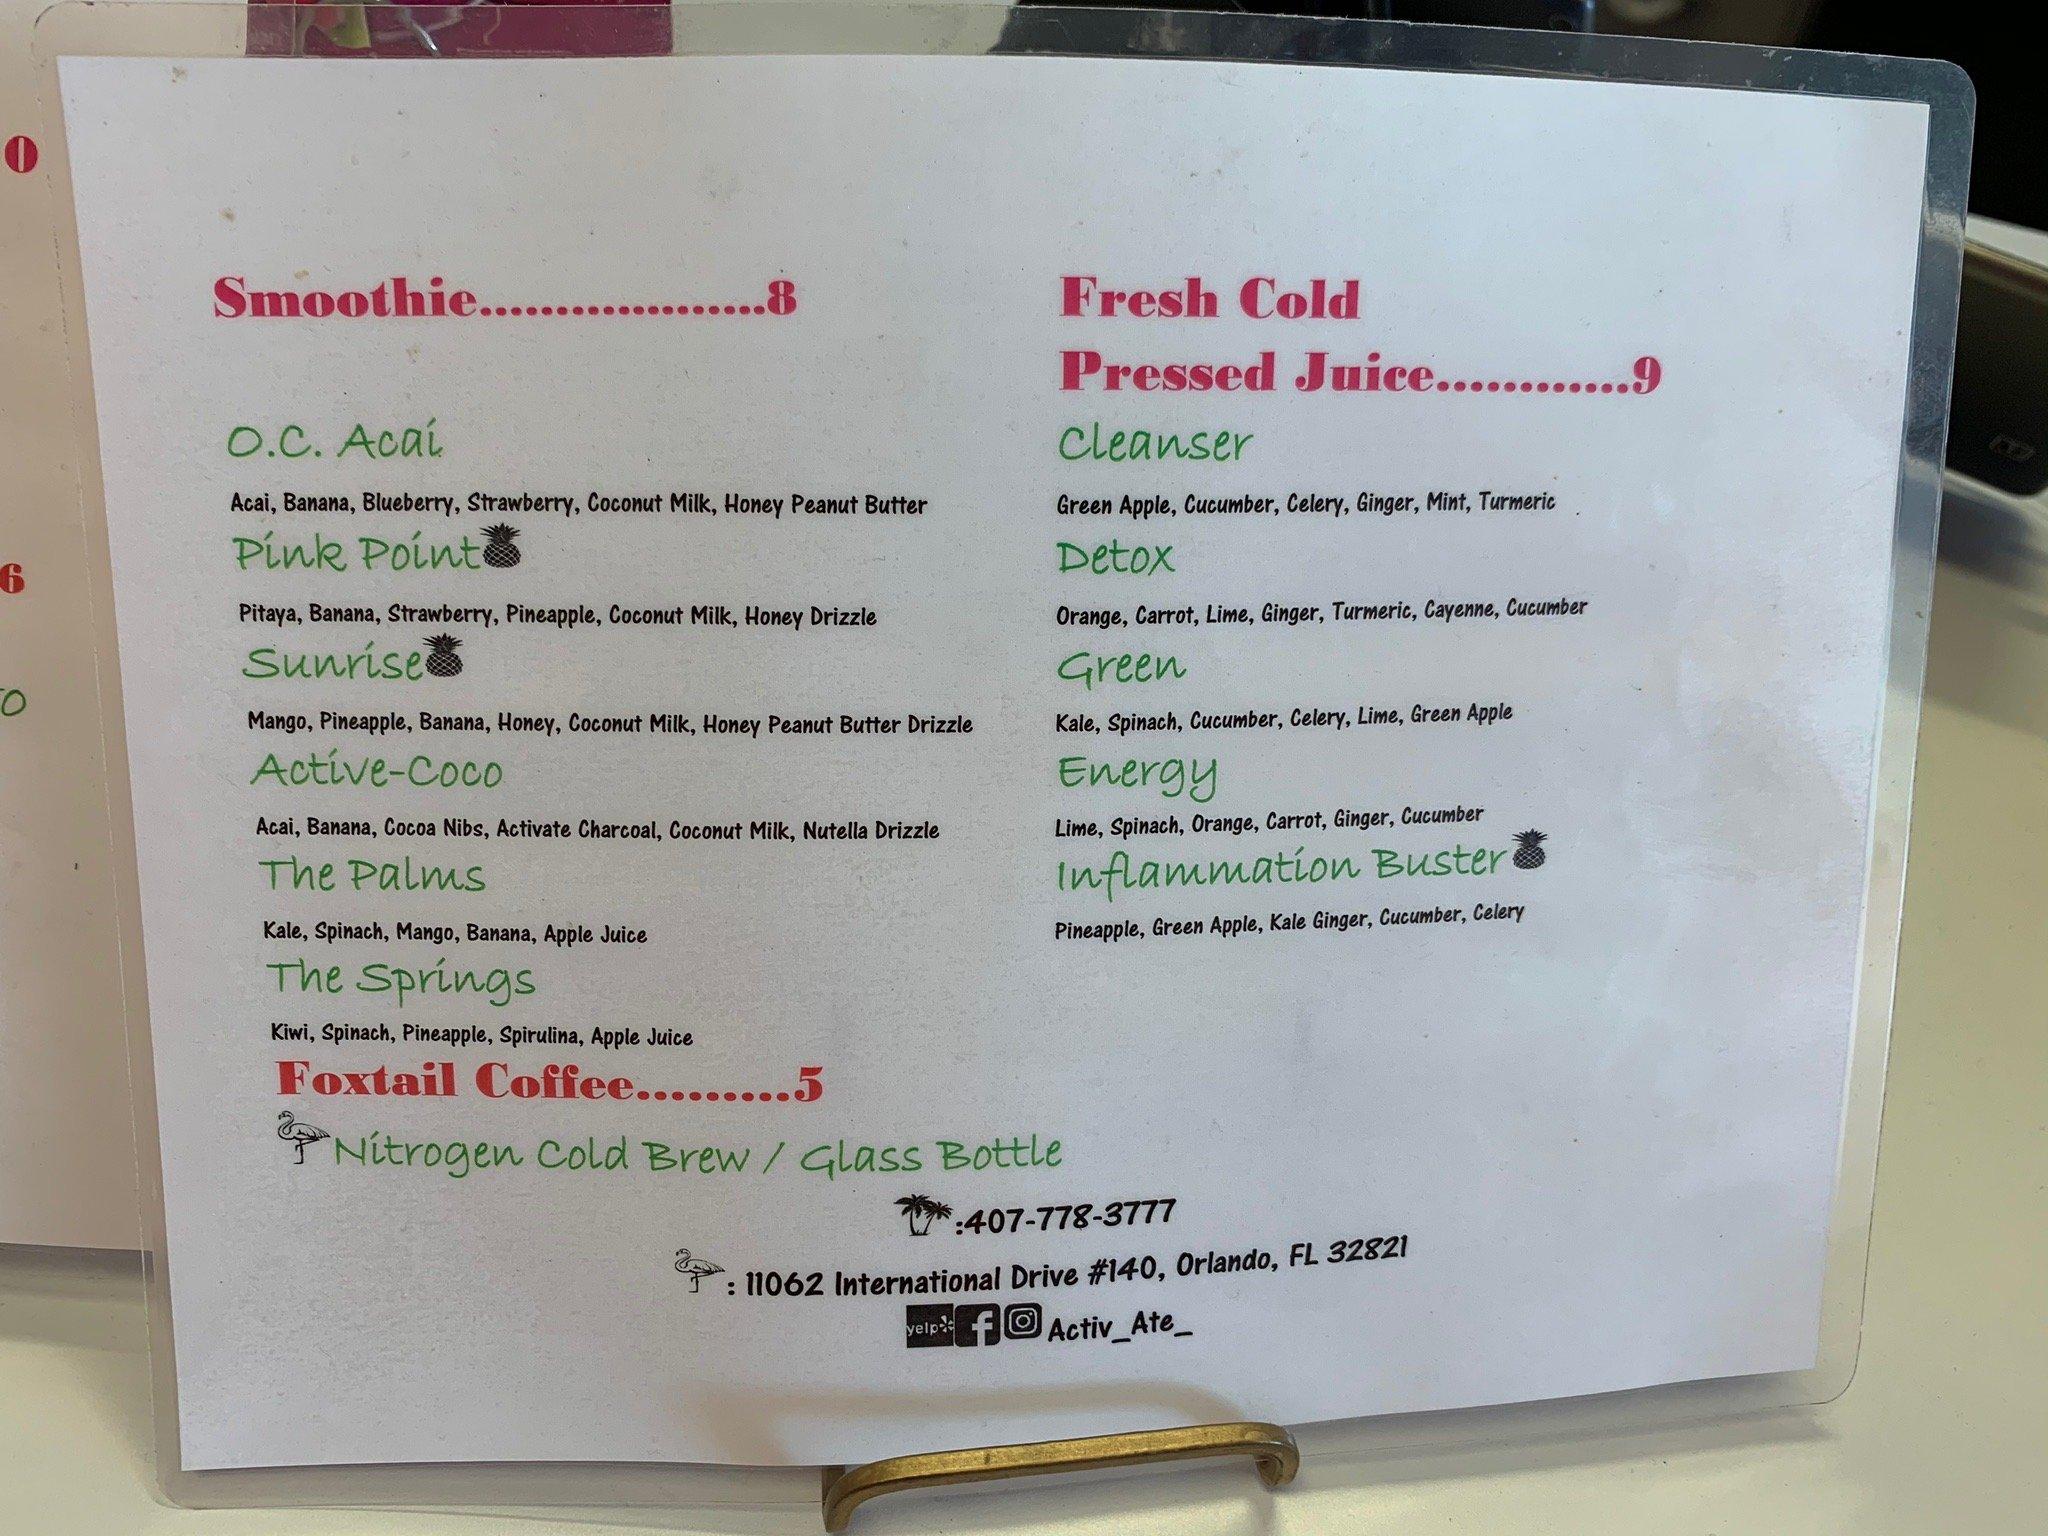 0
6
TO
Smoothie...................8
O.C. Acai
Acai, Banana, Blueberry, Strawberry, Coconut Milk, Honey Peanut Butter
Pink Point
Pitaya, Banana, Strawberry, Pineapple, Coconut Milk, Honey Drizzle
Sunrise
Mango, Pineapple, Banana, Honey, Coconut Milk, Honey Peanut Butter Drizzle
Active-Coco
Acai, Banana, Cocoa Nibs, Activate Charcoal, Coconut Milk, Nutella Drizzle
The Palms
Kale, Spinach, Mango, Banana, Apple Juice
The Springs
Kiwi, Spinach, Pineapple, Spirulina, Apple Juice
Foxtail Coffee..........5
Nitrogen Cold Brew / Glass Bottle
Fresh Cold
Pressed Juice.............9
Cleanser
Green Apple, Cucumber, Celery, Ginger, Mint, Turmeric
Detox
Orange, Carrot, Lime, Ginger, Turmeric, Cayenne, Cucumber
Green
Kale, Spinach, Cucumber, Celery, Lime, Green Apple
Energy
Lime, Spinach, Orange, Carrot, Ginger, Cucumber
Inflammation Buster
Pineapple, Green Apple, Kale Ginger, Cucumber, Celery
:407-778-3777
: 11062 International Drive #140, Orlando, FL 32821
yelp f Activ_Ate_